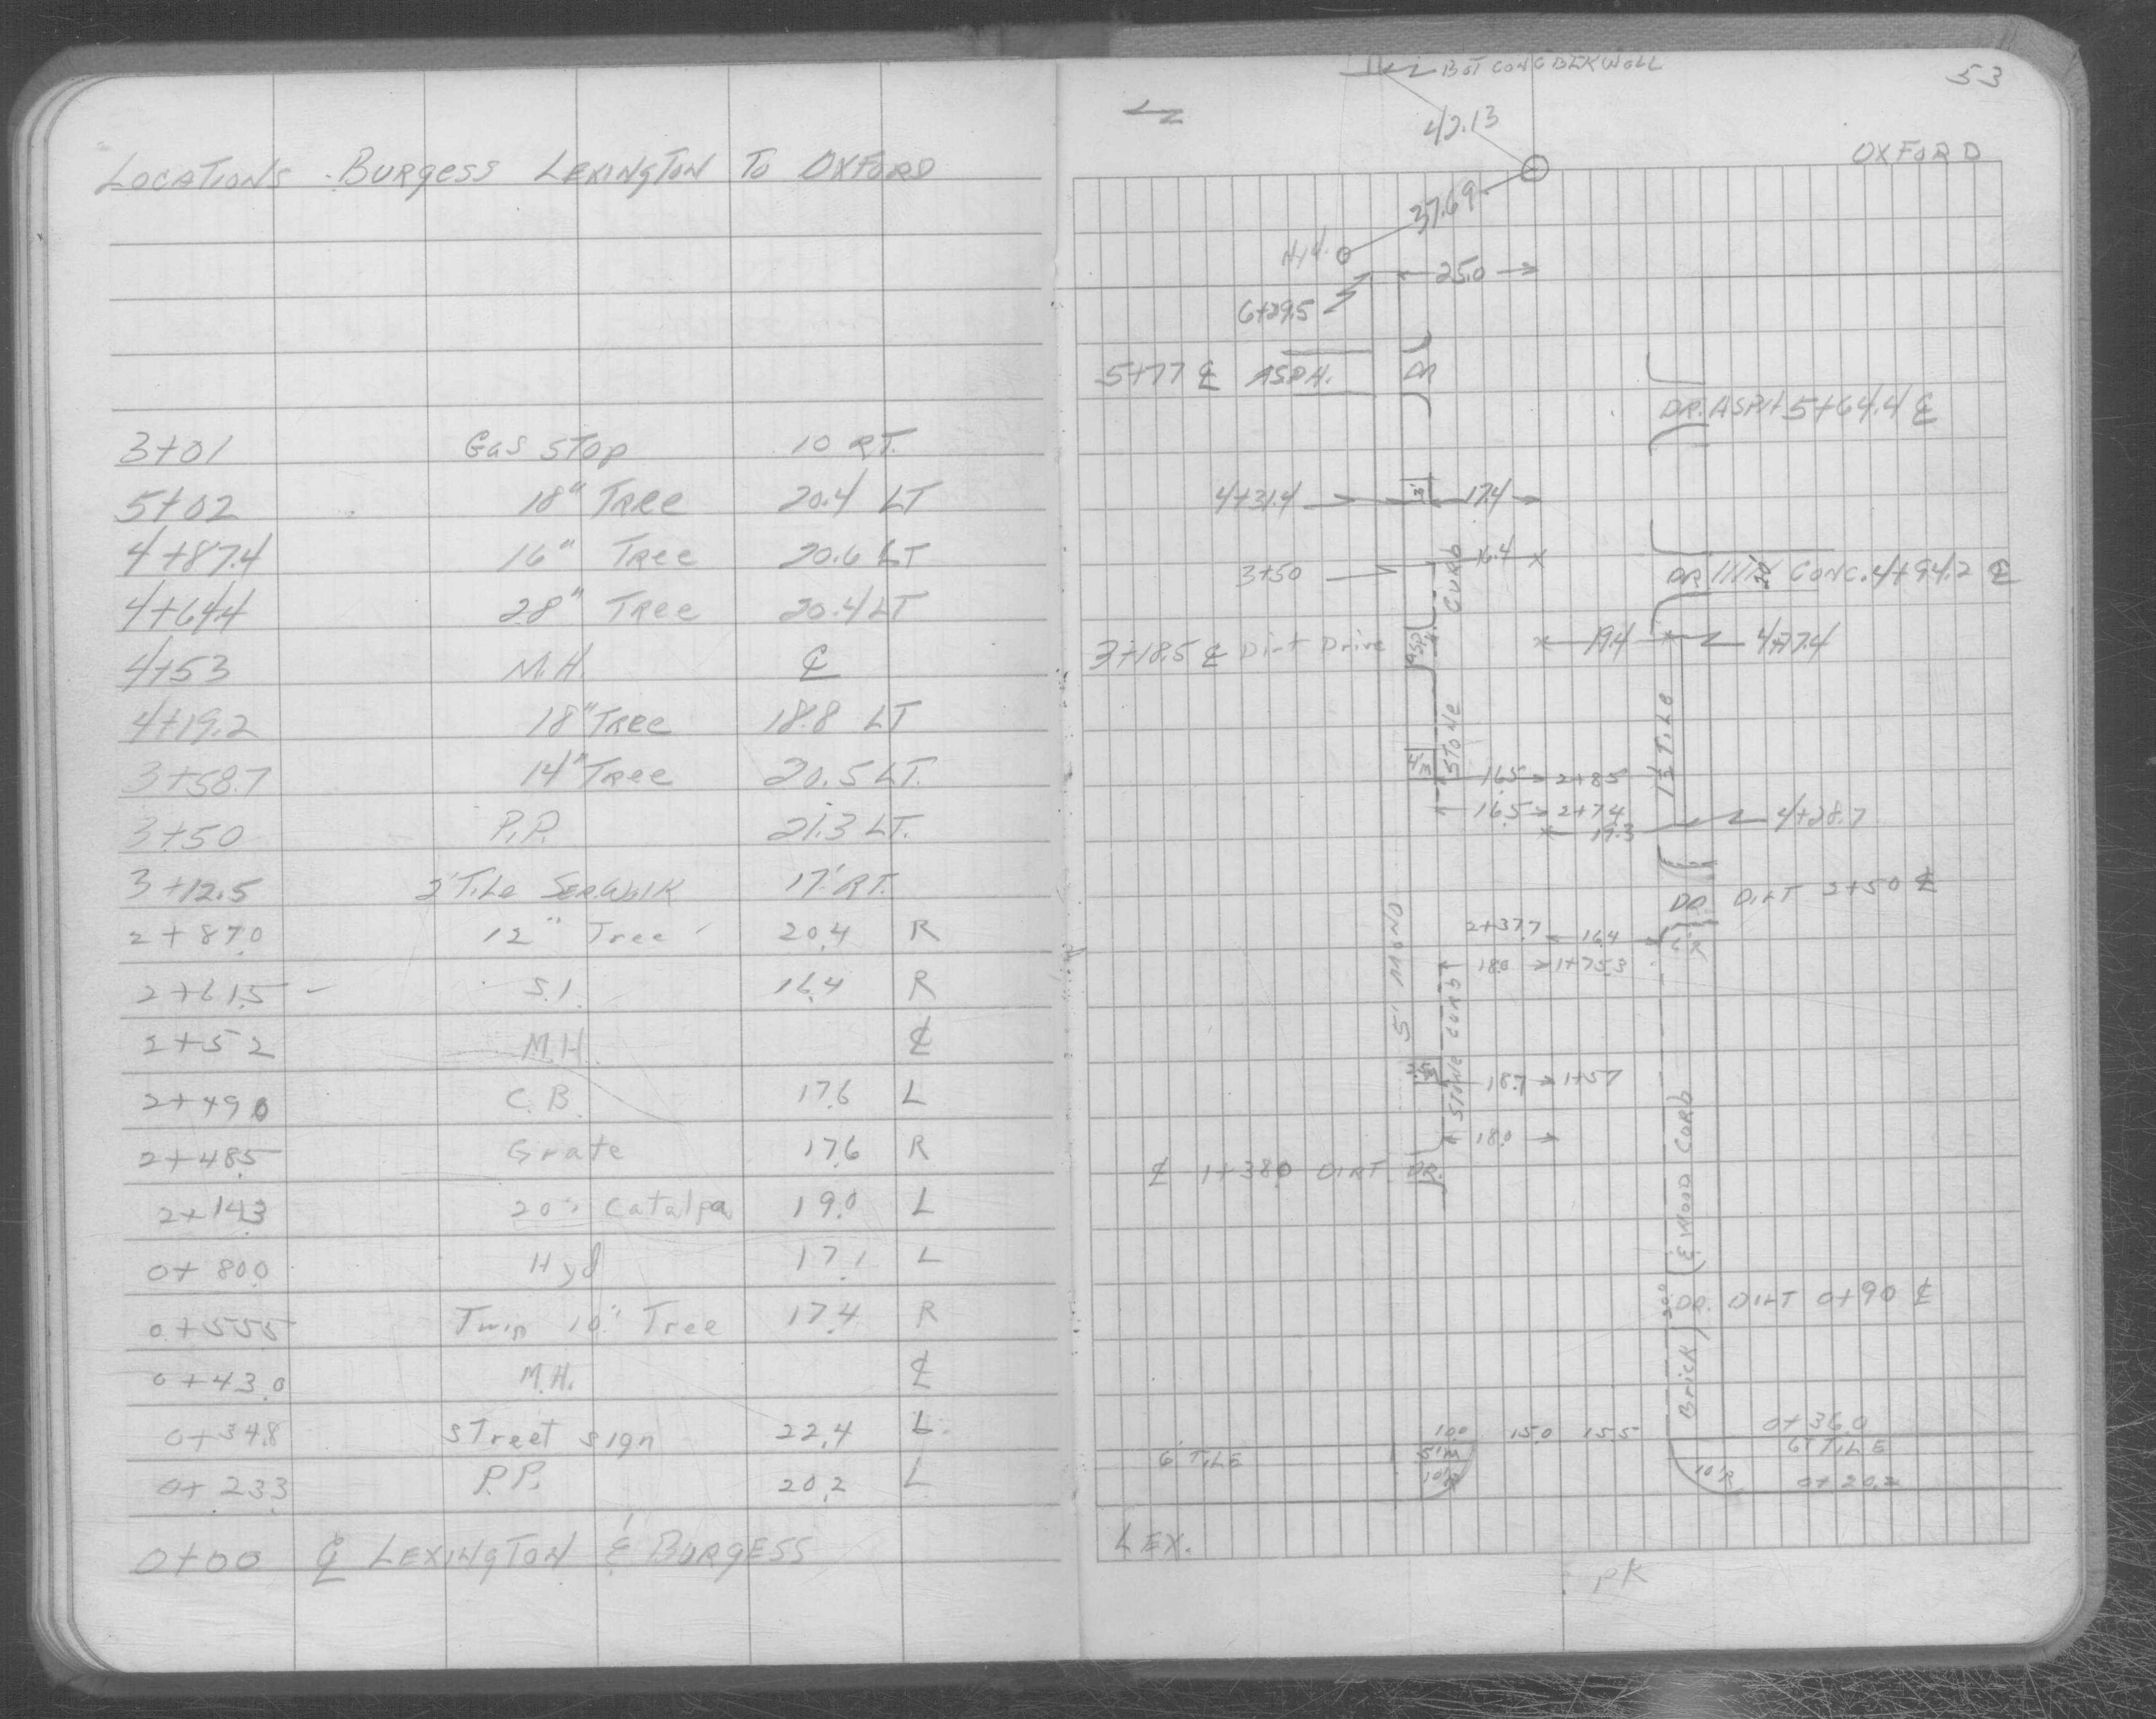 LOCATIONS - BURGESS LEXINGTON TO OXFORD
3+01 Gas STOP 10 RT.
5+02 18" TREE 20.4 LT
4+87.4 16" TREE 20.6 LT
4+64.4 28" TREE 20.4 LT
4+53 M.H. ℄
4+19.2 18" TREE 18.8 LT
3+58.7 14" TREE 20.5 LT.
3+50 P.P. 21.3 LT.
3+12.5 2' TILE SER.WALK 17' RT.
2+87.0 12" Tree 20.4 R
2+61.5 - S.I. 16.4 R
2+52 M.H. ℄
2+49.0 C.B. 17.6 L
2+48.5 Grate 17.6 R
2+14.3 20" Catalpa 19.0 L
0+80.0 Hyd 17.1 L
0+55.5 Twin 10" Tree 17.4 R
0+43.0 M.H. ℄
0+34.8 STreet sign 22.4 L
0+23.3 P.P. 20.2 L
0+00 ℄ LEXINGTON & BURGESS
53
BOT CONC BLK WALL
42.13
OXFORD
37.69
25.0
6+29.5
5+77 ℄ ASPH. DR
DR. ASPH 5+64.4 ℄
4+31.4 3' 17.4
3+50 16.4
DR CONC. 4+94.2 ℄
CURB
3+18.5 ℄ Dirt Drive ASPH
19.4 4+77.4
STONE
1½ TILE
16.5 2+85
16.5 2+74
19.3 4+28.7
DR DIRT 3+50 ℄
2+37.7 16.4
18.0 1+75.3
5' MONO
STONE CURB
18.7 1+57
18.0
℄ 1+38.0 DIRT DR.
& WOOD CURB
DR. DIRT 0+90 ℄
Brick
10.0 15.0 15.5 0+36.0
6' TILE 5'M 6' TILE
10'R 10'R 0+20.2
LEX.
PK